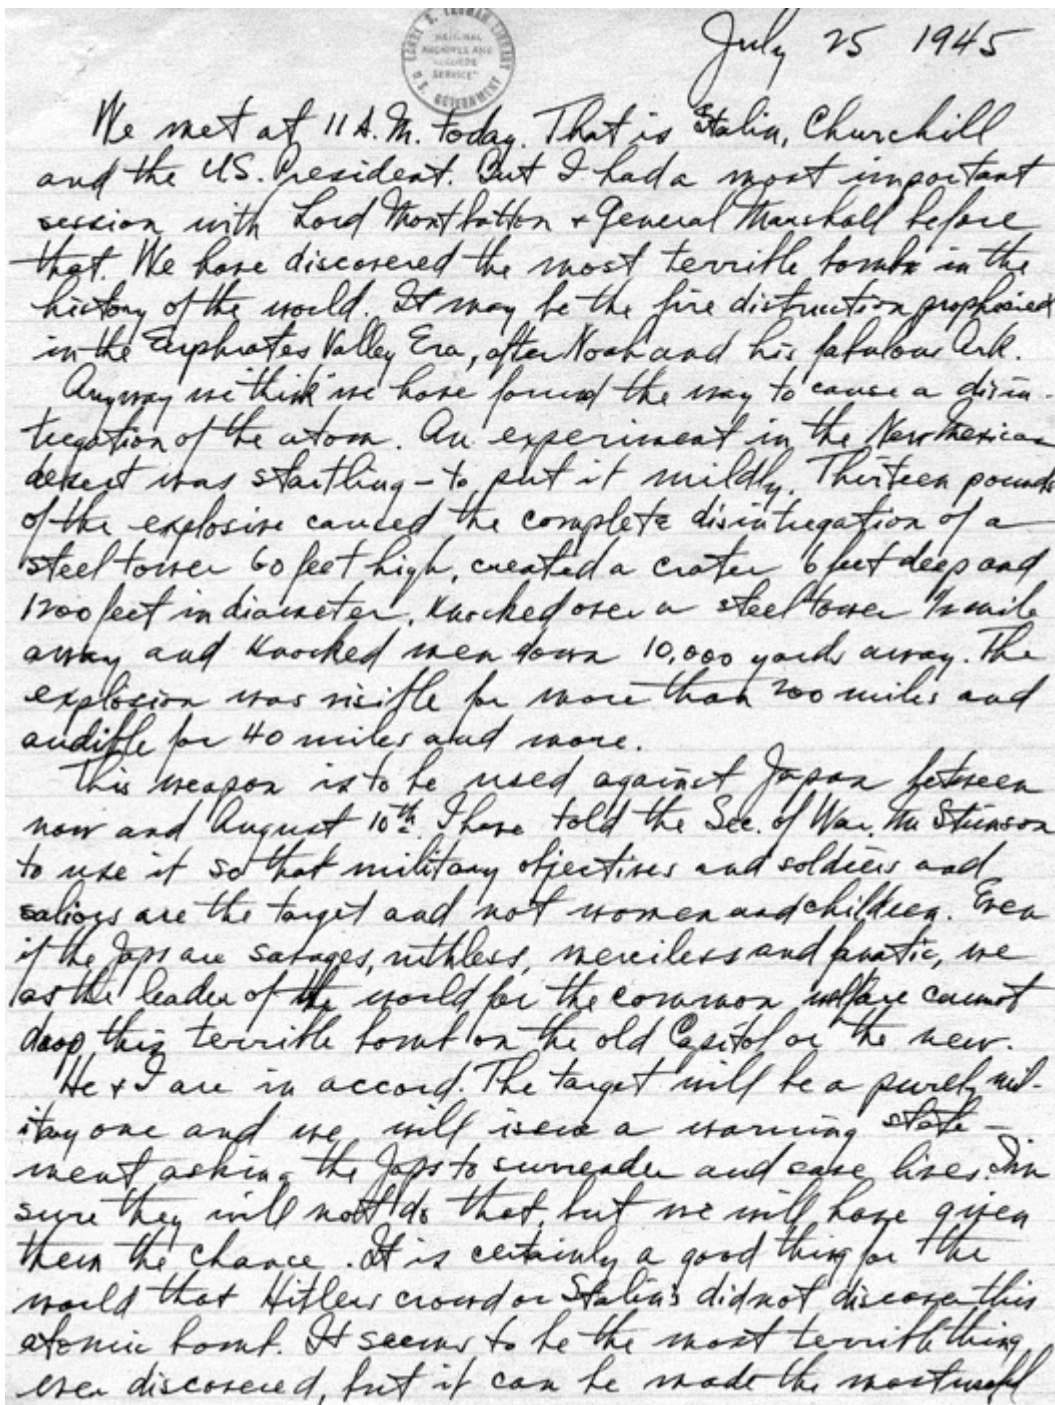 HARRY S. TRUMAN LIBRARY
NATIONAL
ARCHIVES AND
RECORDS
SERVICE
U.S. GOVERNMENT
July 25 1945
We met at 11 A.M. today. That is Stalin, Churchill
and the U.S. President. But I had a most important
session with Lord Montbatton & General Marshall before
that. We have discovered the most terrible bomb in the
history of the world. It may be the fire distruction prophesied
in the Euphrates Valley Era, after Noah and his fabulous Ark.
Anyway we "think" we have found the way to cause a disin-
tegration of the atom. An experiment in the New Mexican
desert was startling - to put it mildly. Thirteen pounds
of the explosive caused the complete disintegration of a
steel tower 60 feet high, created a crater 6 feet deep and
1200 feet in diameter, knocked over a steel tower 1/2 mile
away and knocked men down 10,000 yards away. The
explosion was visible for more than 200 miles and
audible for 40 miles and more.
This weapon is to be used against Japan between
now and August 10th. I have told the Sec. of War, Mr. Stimson
to use it so that military objectives and soldiers and
sailors are the target and not women and children. Even
if the Japs are savages, ruthless, merciless and fanatic, we
as the leader of the world for the common welfare cannot
drop this terrible bomb on the old Capitol or the new.
He & I are in accord. The target will be a purely mil-
itary one and we will issue a warning state-
ment asking the Japs to surrender and save lives. I'm
sure they will not do that, but we will have given
them the chance. It is certainly a good thing for the
world that Hitler's crowd or Stalin's did not discover this
atomic bomb. It seems to be the most terrible thing
ever discovered, but it can be made the most useful